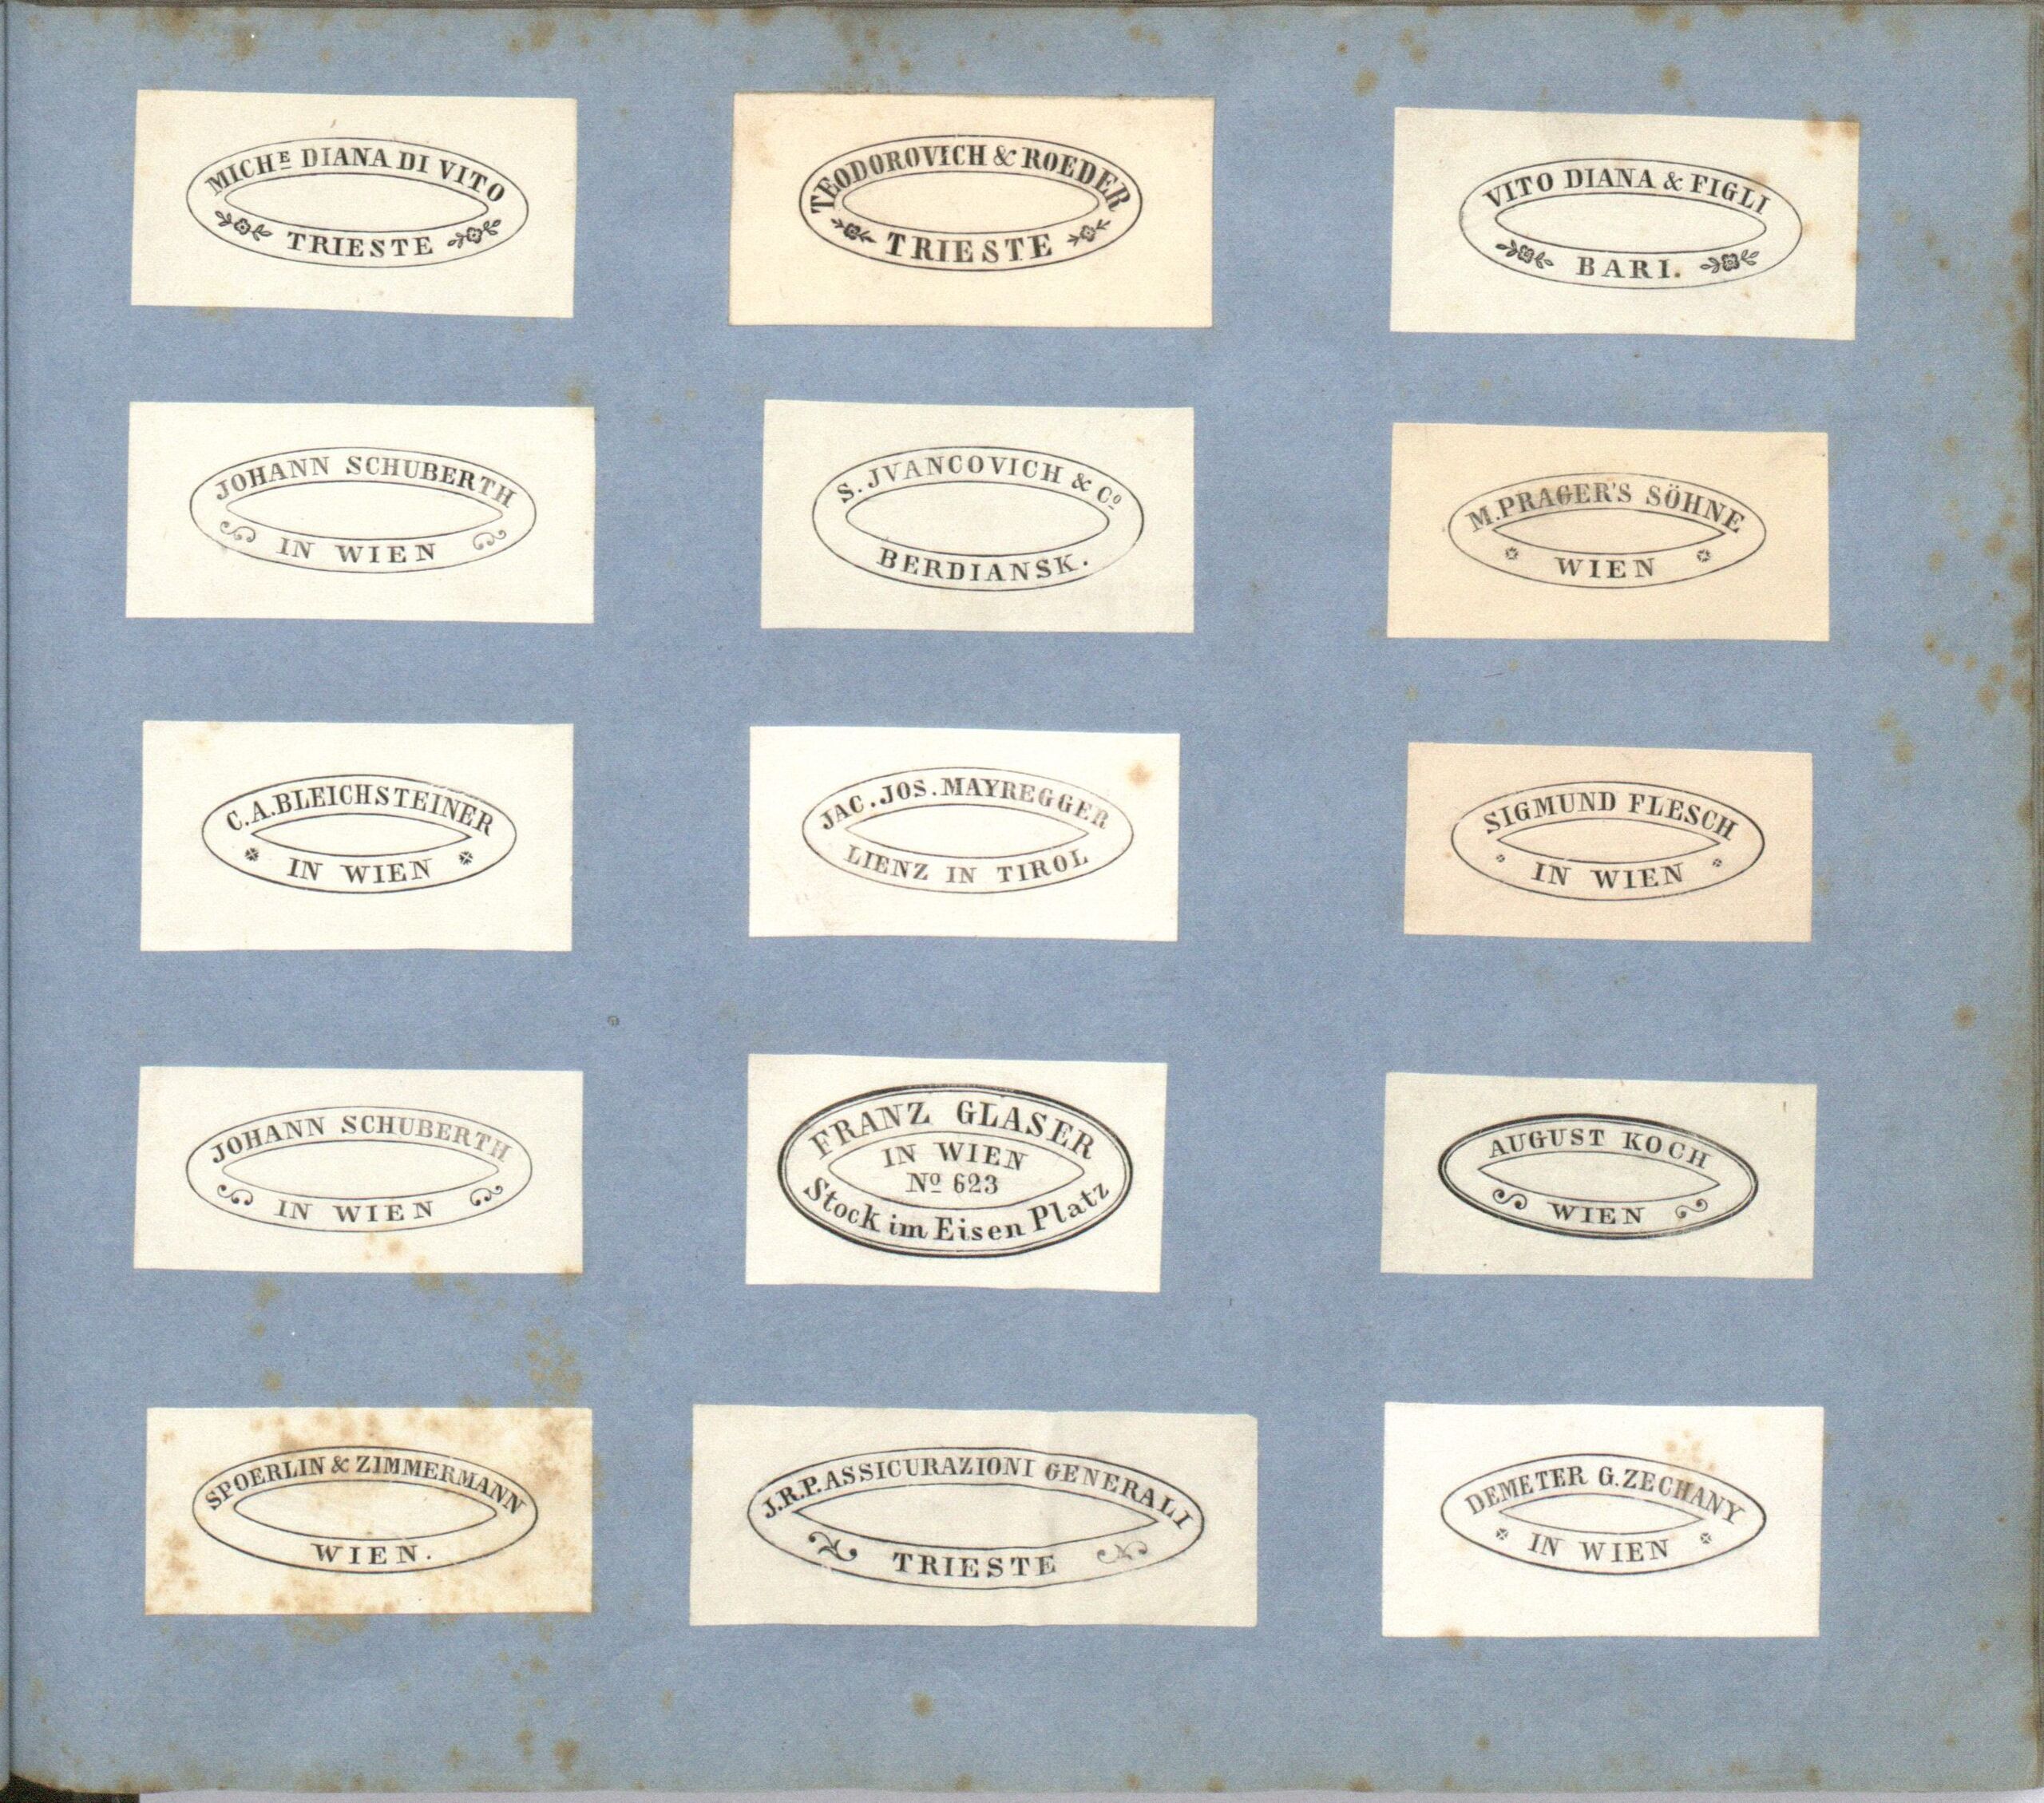 MICHE DIANA DI VITO
TRIESTE
TEODOROVICH & ROEDER
TRIESTE
VITO DIANA & FIGLI
BARI.
JOHANN SCHUBERTH
IN WIEN
S. JVANCOVICH & Cº
BERDIANSK.
M. PRAGER'S SÖHNE
WIEN
C. A. BLEICHSTEINER
IN WIEN
JAC. JOS. MAYREGGER
LIENZ IN TIROL
SIGMUND FLESCH
IN WIEN
JOHANN SCHUBERTH
IN WIEN
FRANZ GLASER
IN WIEN
Nº 623
Stock im Eisen Platz
AUGUST KOCH
WIEN
SPOERLIN & ZIMMERMANN
WIEN.
J. R. P. ASSICURAZIONI GENERALI
TRIESTE
DEMETER G. ZECHANY
IN WIEN